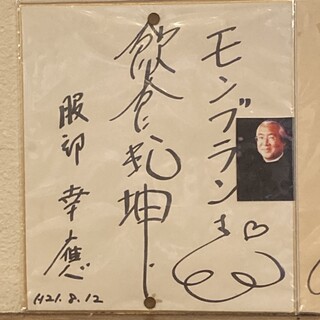 モンブランさ
飲食乾坤
服部幸應
H21.8.12